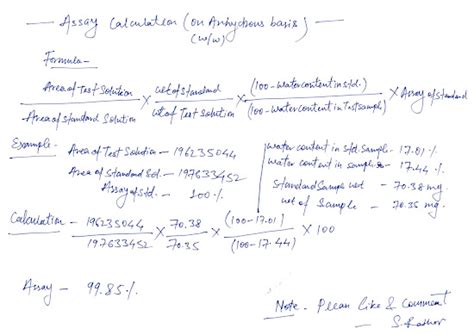 Assay Calculation (on Anhydrous basis)
(w/w)
Formula -
Area of Test Solution / Area of Standard Solution × wt of Standard / wt of Test Solution × (100 - water content in std.) / (100 - water content in Test sample) × Assay of standard
Example - Area of Test Solution - 196235044
Area of Standard Sol. - 197633452
Assay of std. - 100%
water content in std sample - 17.01%
water content in sample - 17.44%
Standard Sample wt - 70.38 mg
wt of Sample - 70.35 mg.
Calculation - 196235044 / 197633452 × 70.38 / 70.35 × (100-17.01) / (100-17.44) × 100
Assay - 99.85%
Note - Please like & Comment